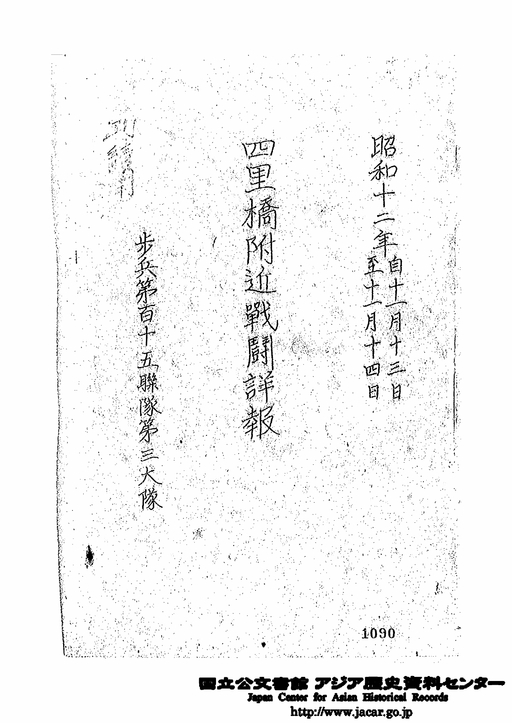 昭和十二年
自十一月十三日
至十一月十四日
四里橋附近戰鬪詳報
步兵第百十五聯隊第三大隊
功績用
1090
国立公文書館 アジア歴史資料センター
Japan Center for Asian Historical Records
http://www.jacar.go.jp